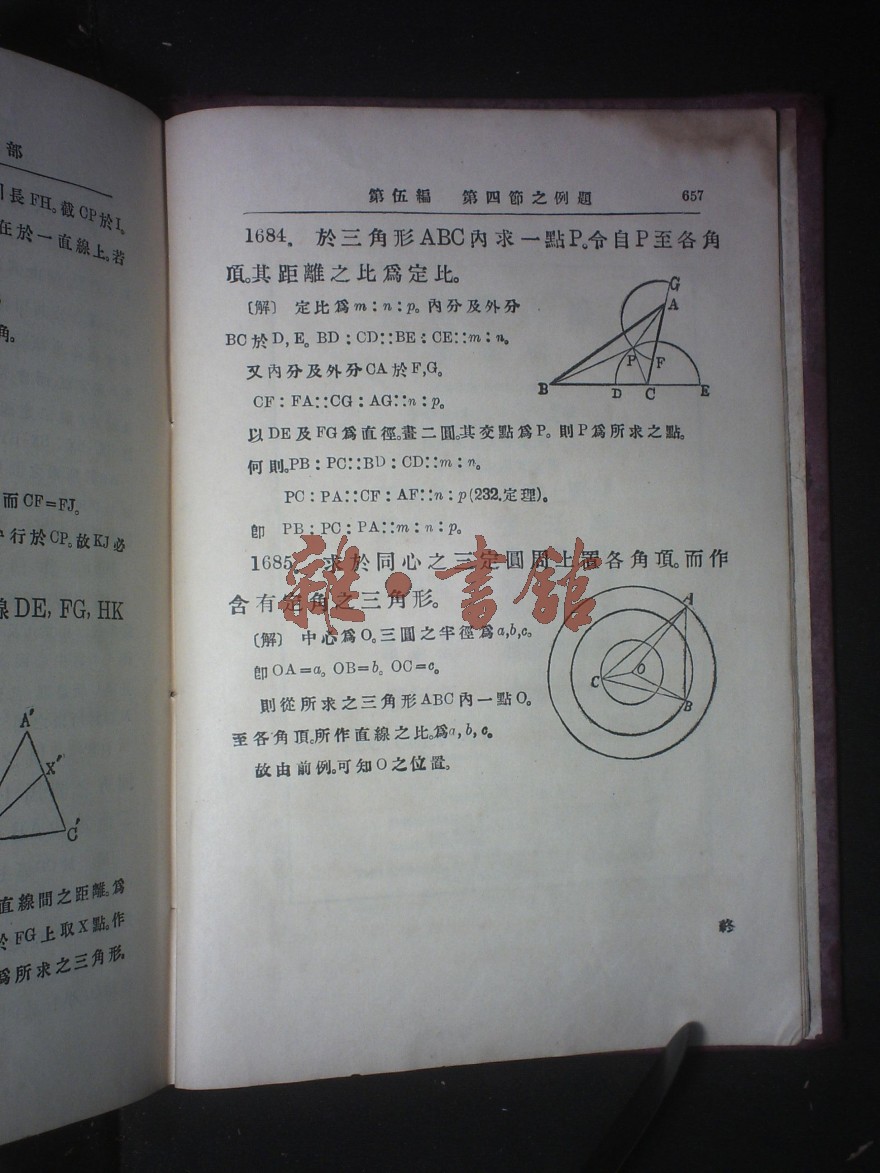 部
長FH。截CP於I。
在於一直線上。若
角。
而CF=FJ。
行於CP。故KJ必
線DE, FG, HK
A′
X′
C′
直線間之距離。爲
於FG上取X點。作
爲所求之三角形。
第伍編 第四節之例題 657
1684. 於三角形ABC內求一點P。令自P至各角
頂。其距離之比爲定比。
〔解〕 定比爲m:n:p。內分及外分
BC於D, E。BD:CD::BE:CE::m:n。
又內分及外分CA於F,G。
CF:FA::CG:AG::n:p。
G
A
P
F
B
D
C
E
以DE及FG爲直徑。畫二圓。其交點爲P。則P爲所求之點。
何則。PB:PC::BD:CD::m:n。
PC:PA::CF:AF::n:p(232.定理)。
卽 PB:PC:PA::m:n:p。
1685. 求於同心之三定圓周上置各角頂。而作
含有定角之三角形。
〔解〕 中心爲O。三圓之半徑爲a,b,c。
卽OA=a。OB=b。OC=c。
則從所求之三角形ABC內一點O。
至各角頂。所作直線之比。爲a, b, c。
故由前例。可知O之位置。
A
O
C
B
終
雜·書館